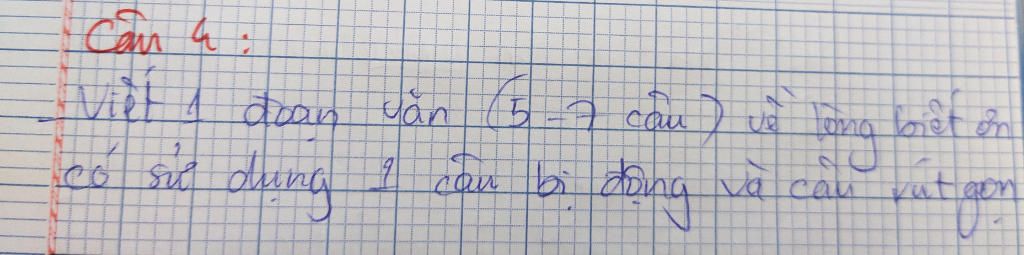 Câu 4 :
Viết 1 đoạn văn (5 - 7 câu) về lòng biết ơn
có sử dụng 1 câu bị động và câu rút gọn